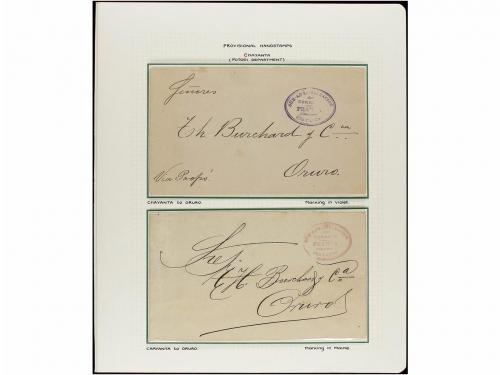 PROVISIONAL HANDSTAMPS
CHAYANTA
(POTOSI DEPARTMENT)
Señores
Th Burchard y Cia
Oruro.
Via Poopó
CHAYANTA to ORURO.
Marking in violet.
Sres.
Th. Burchard y Cia
Oruro
CHAYANTA to ORURO.
Marking in mauve.